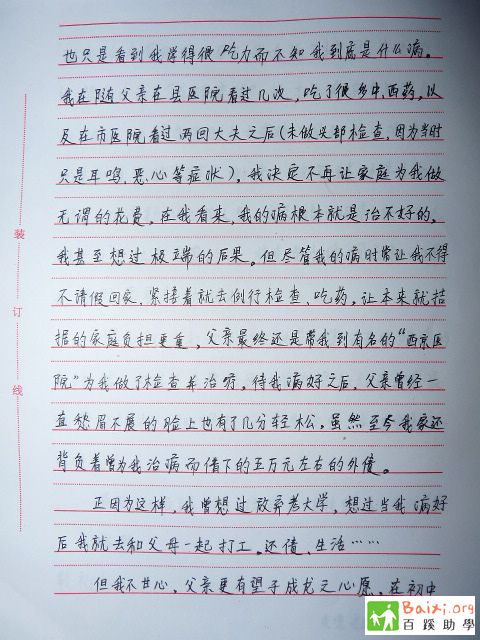 也只是看到我学得很吃力而不知我到底是什么病。
我在随父亲在县医院看过几次，吃了很多中、西药，以
及在市医院看过两回大夫之后（未做头部检查，因为当时
只是耳鸣、恶心等症状），我决定不再让家庭为我做
无谓的花费，在我看来，我的病根本就是治不好的。
我甚至想过极端的后果。但尽管我的病时常让我不得
不请假回家，紧接着就去例行检查、吃药，让本来就拮
据的家庭负担更重，父亲最终还是带我到有名的“西京医
院”为我做了检查并治疗，待我病好之后，父亲曾经一
直愁眉不展的脸上也有了几分轻松。虽然至今我家还
背负着曾为我治病而借下的五万元左右的外债。
正因为这样，我曾想过放弃考大学，想过当我病好
后我就去和父母一起打工。还债、生活……
但我不甘心，父亲更有望子成龙之心愿，在初中
装
订
线
Baixi.org
百蹊助學